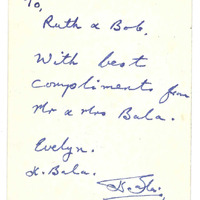 To,
Ruth & Bob.
With best
compliments from
Mr & Mrs Bala.
Evelyn.
K. Bala.